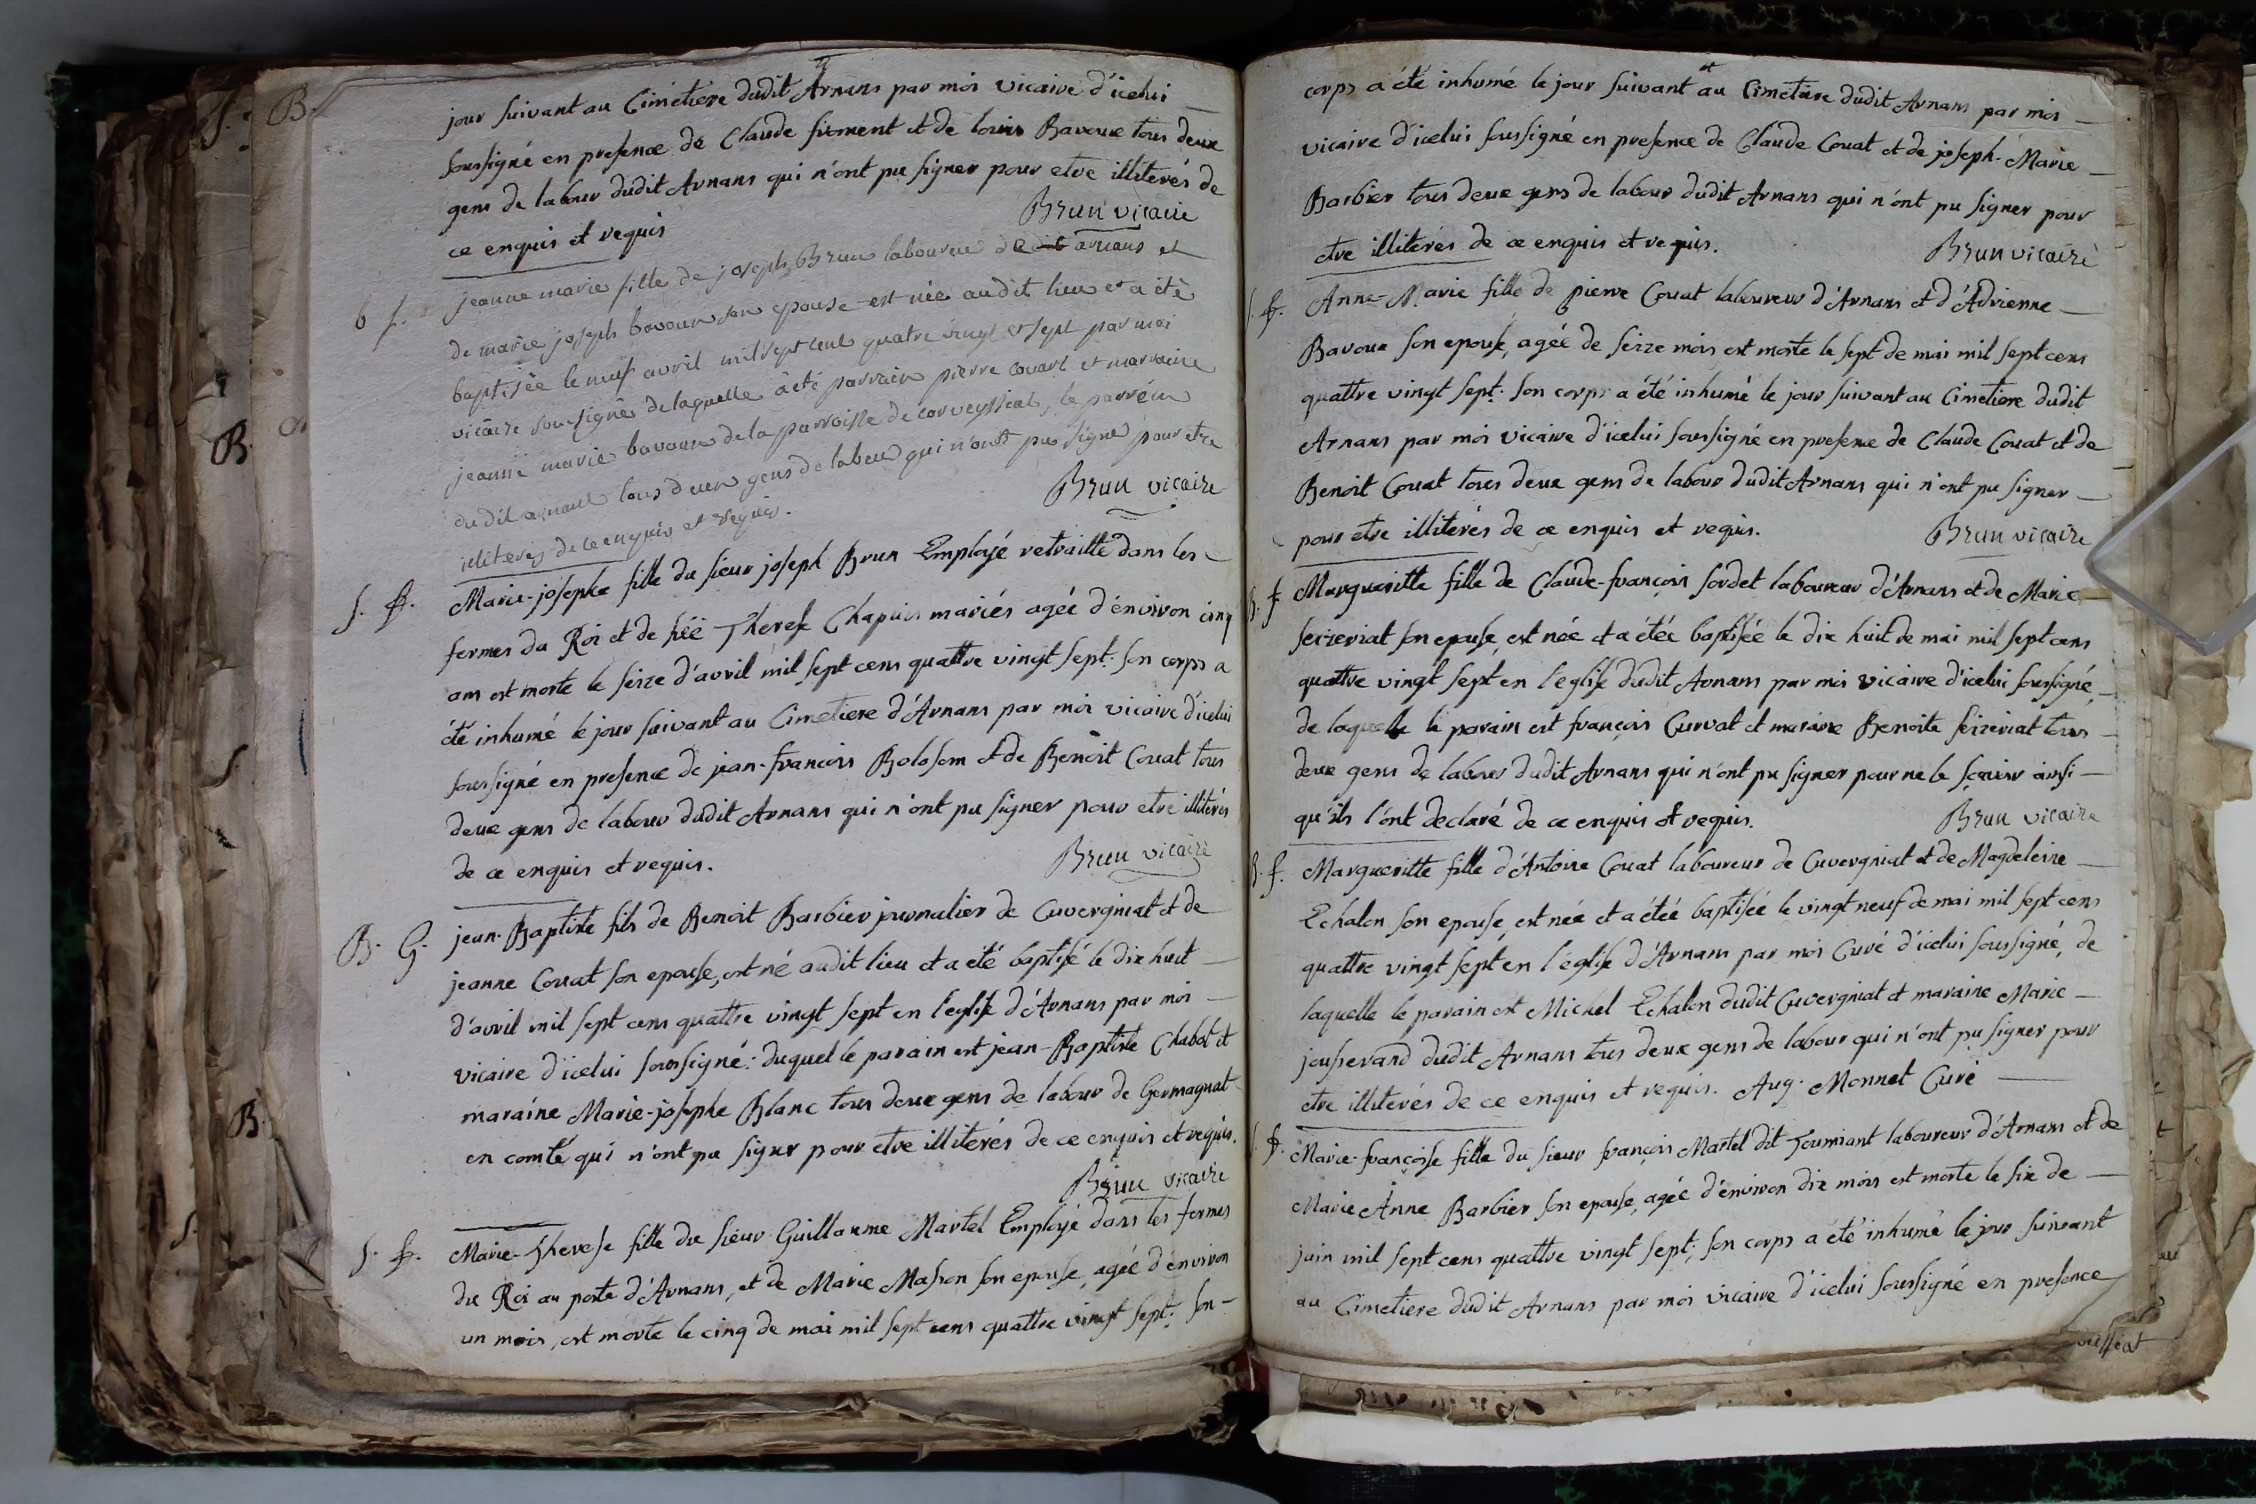 B.
jour suivant au Cimetiere dudit Arnans par moi vicaire d'icelui
soussigné en presence de Claude froment et de louis Bavoux tous deux
gens de labour dudit Arnans qui n'ont pu signer pour etre illiterés de
ce enquis et requis
Brun vicaire
b f. jeanne marie fille de joseph Brun laboureur de arnans et
de marie joseph bavoux son epouse est née audit lieu et a été
baptisée le neuf avril mil sept cent quatre vingt et sept par moi
vicaire sousigné de laquelle a été parrain pierre couart et marraine
jeanne marie bavoux de la parroisse de corveyssiat, le parrein
du dit arnans tous deux gens de labeur qui n'ont pu signé pour etre
illiterés de ce enquis et requis.
Brun vicaire
S. f. Marie-josephe fille du sieur joseph Brun Employé retraitté dans les
fermes du Roi et de Therese Chapuis mariés agée d'environ cinq
ans est morte le seize d'avril mil sept cens quattre vingt sept. son corps a
été inhumé le jour suivant au Cimetiere d'Arnans par moi vicaire d'icelui
soussigné en presence de jean-francois Bolosom et de Benoit Couat tous
deux gens de labour dudit Arnans qui n'ont pu signer pour etre illiterés
de ce enquis et requis.
Brun vicaire
B. G. jean-Baptiste fils de Benoit Barbier journalier de Cuvergniat et de
jeanne Couat son epouse, est né audit lieu et a été baptisé le dix huit
d'avril mil sept cens quattre vingt sept en l'eglise d'Arnans par moi
vicaire d'icelui soussigné: duquel le parain est jean-Baptiste Chabot et
maraine Marie-josephe Blanc tous deux gens de labour de Germagnat
en comté qui n'ont pu signer pour etre illiterés de ce enquis et requis.
Brun vicaire
S. f. Marie-Therese fille du sieur Guillaume Martel Employé dans les fermes
du Roi au poste d'Arnans, et de Marie Masson son epouse, agée d'environ
un mois, est morte le cinq de mai mil sept cens quattre vingt sept. son
corps a été inhumé le jour suivant au Cimetiere dudit Arnans par moi
vicaire d'icelui soussigné en presence de Claude Couat et de joseph-Marie
Barbier tous deux gens de labour dudit Arnans qui n'ont pu signer pour
etre illiterés de ce enquis et requis.
Brun vicaire
S. f. Anne-Marie fille de pierre Couat laboureur d'Arnans et d'Adrienne
Bavoux son epouse, agée de seize mois est morte le sept de mai mil sept cens
quattre vingt sept. son corps a été inhumé le jour suivant au Cimetiere dudit
Arnans par moi vicaire d'icelui soussigné en presence de Claude Couat et de
Benoit Couat tous deux gens de labour dudit Arnans qui n'ont pu signer
pour etre illiterés de ce enquis et requis.
Brun vicaire
B. f. Margueritte fille de Claude-françois sordet laboureur d'Arnans et de Marie
seizeriat son epouse, est née et a étée baptisée le dix huit de mai mil sept cens
quattre vingt sept en l'eglise dudit Arnans par moi vicaire d'icelui soussigné,
de laquelle le parain est françois Curvat et maraine Benoite seizeriat tous
deux gens de labour dudit Arnans qui n'ont pu signer pour ne le sçavoir ainsi
qu'ils l'ont declaré de ce enquis et requis.
Brun vicaire
B. f. Margueritte fille d'Antoine Couat laboureur de Cuvergniat et de Magdeleine
Echalon son epouse, est née et a étée baptisée le vingt neuf de mai mil sept cens
quattre vingt sept en l'église d'Arnans par moi Curé d'icelui soussigné, de
laquelle le parain est Michel Echalon dudit Cuvergniat et maraine Marie
jousserand dudit Arnans tous deux gens de labour qui n'ont pu signer pour
etre illiterés de ce enquis et requis. Aug. Monnet Curé
S. f. Marie-françoise fille du sieur françois Martel dit Tourniant laboureur d'Arnans et de
Marie Anne Barbier son epouse, agée d'environ dix mois est morte le six de
juin mil sept cens quattre vingt sept; son corps a été inhumé le jour suivant
au Cimetiere dudit Arnans par moi vicaire d'icelui soussigné en presence